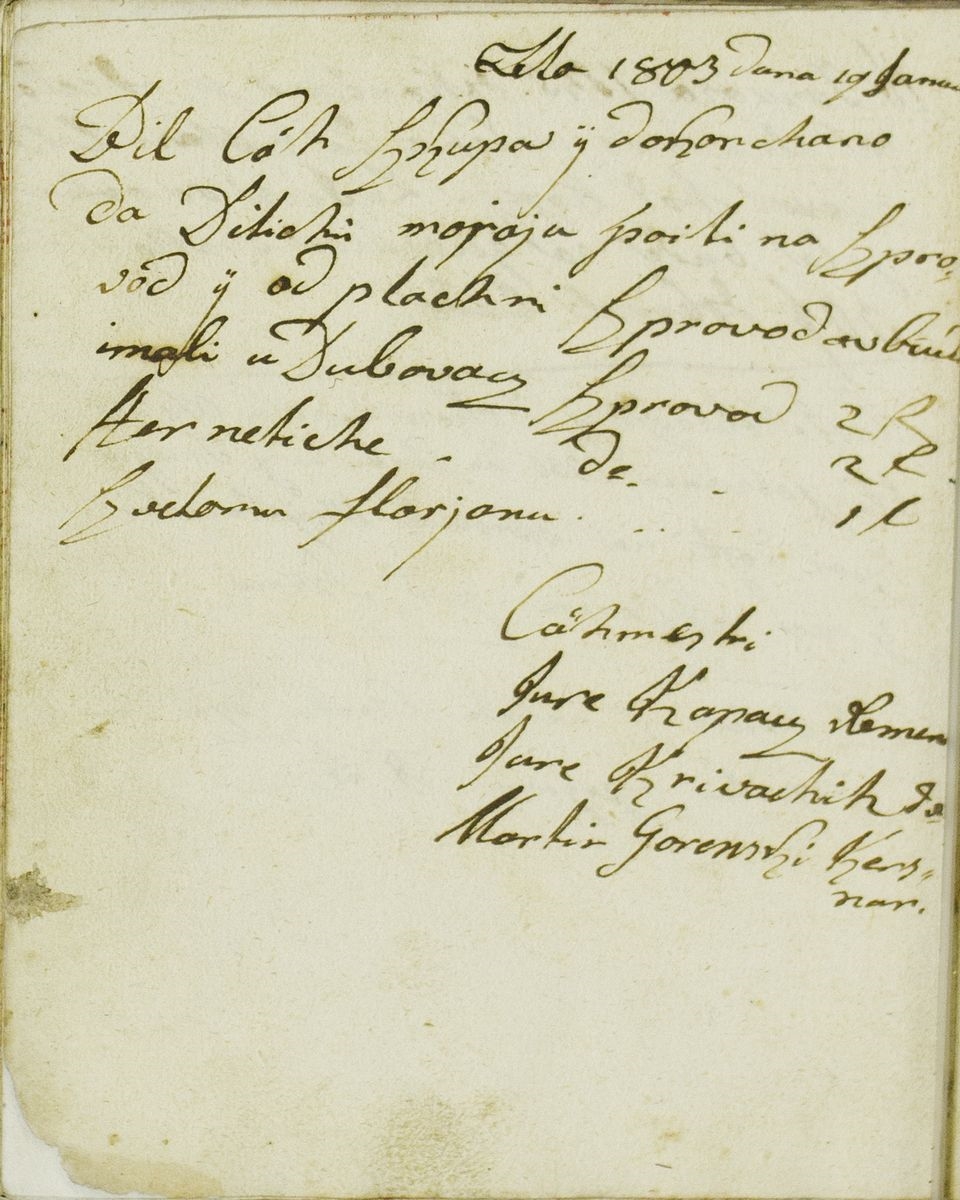 Leto 1803 dana 19 Janu
Bil Cöh Szkupa ÿ dokonchano
da Ditichii morаju poiti na Szpro-
vod ÿ od plachni Szprovod
imali u Dubovacz Szprovod 2 R
Hernetiche de. 2 R
Szvetomu Florjanu 1 R
Cöhmestri
Jure Kapacz Remen
Jure Krivachich de
Martin Gorenszki Kerz-
nar.